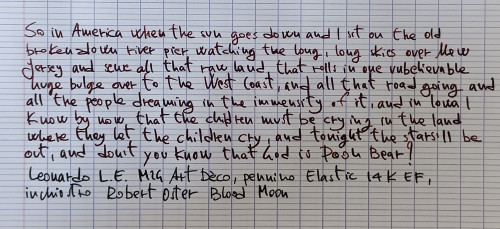 So in America when the sun goes down and I sit on the old
broken down river pier watching the long, long skies over New
Jersey and sense all that raw land that rolls in one unbelievable
huge bulge over to the West Coast, and all that road going and
all the people dreaming in the immensity of it, and in Iowa I
know by now that the children must be crying in the land
where they let the children cry, and tonight the stars'll be
out, and don't you know that God is Pooh Bear?
Leonardo L.E. MZG Art Deco, pennino Elastic 14K EF,
inchiostro Robert Oster Blood Moon